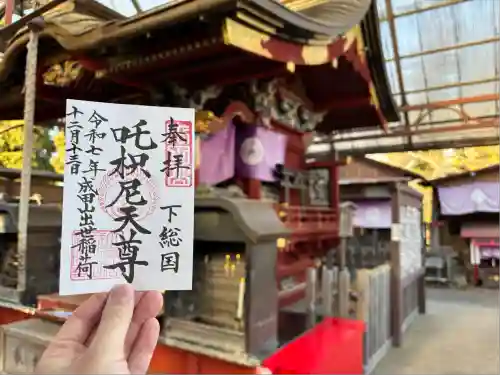 奉拝
下総国
吒枳尼天尊
成田山出世稲荷
令和七年
十二月十三日